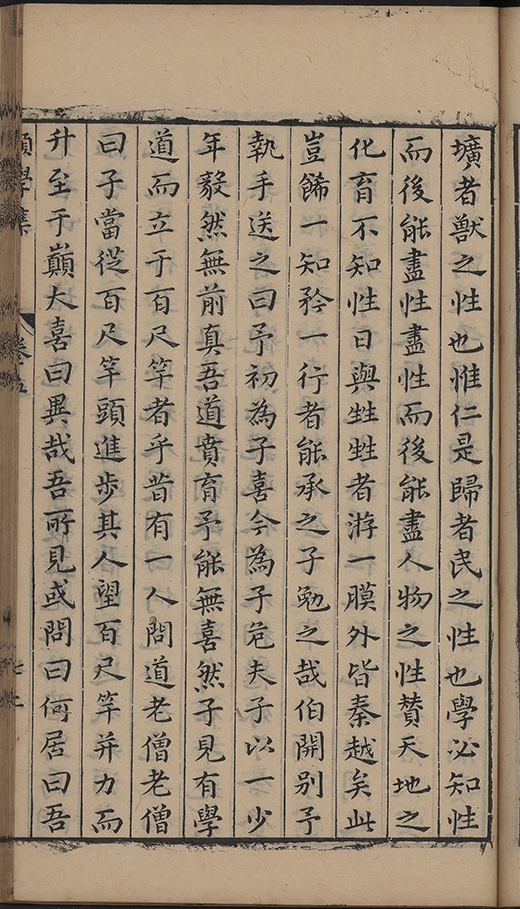 壙者獸之性也惟仁是歸者民之性也學必知性
而後能盡性盡性而後能盡人物之性贊天地之
化育不知性日與甡甡者游一膜外皆秦越矣此
豈餙一知矜一行者能承之子勉之哉伯開別予
執手送之曰予初為子喜今為子危夫子以一少
年毅然無前真吾道賁育予能無喜然子見有學
道而立于百尺竿者乎昔有一人問道老僧老僧
曰子當從百尺竿頭進步其人望百尺竿并力而
升至于巔大喜曰異哉吾所見或問曰何居曰吾
學集
卷五